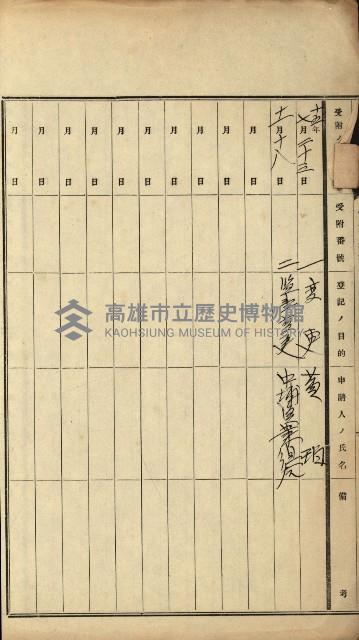 受附ノ
受附番號
登記ノ目的
申請人ノ氏名
備考
十五年
七月二十三日
一
変更
黄
十一月十八日
二
変更
月 日
月 日
月 日
月 日
月 日
月 日
月 日
月 日
月 日
高雄市立歷史博物館
KAOHSIUNG MUSEUM OF HISTORY